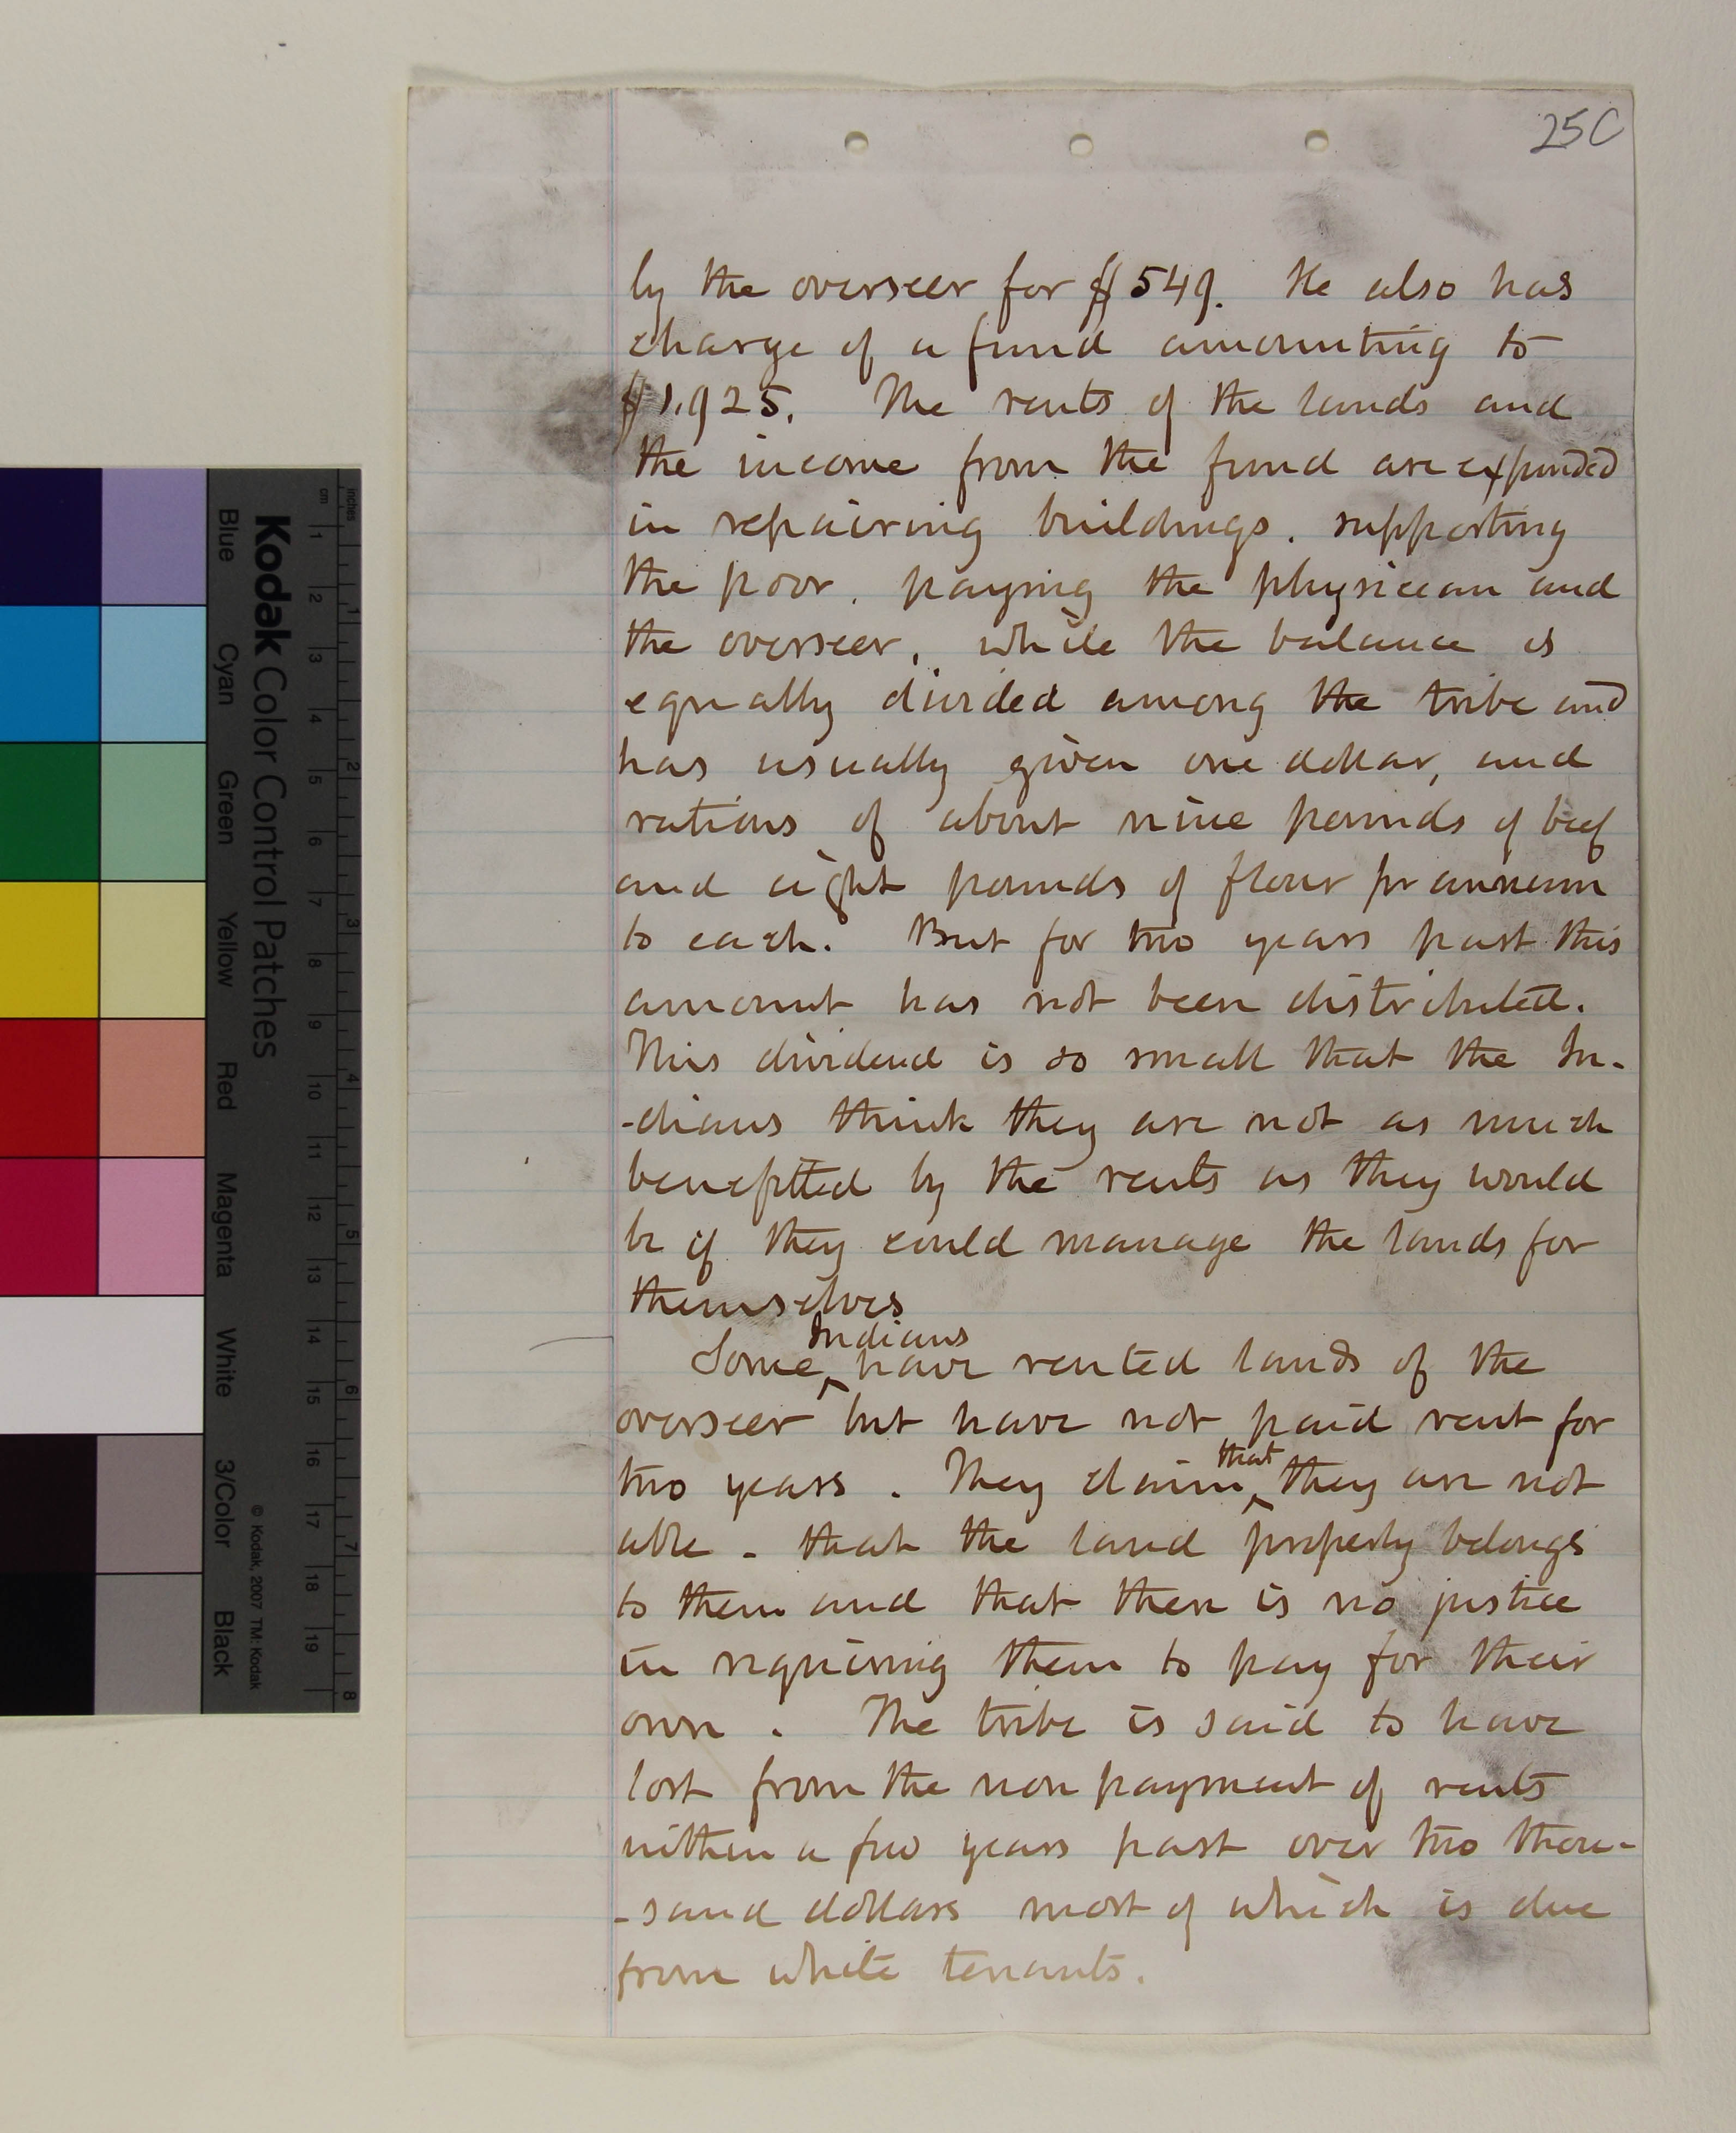 25C
by the overseer for $549. He also has
charge of a fund amounting to
$1,925. The rents of the lands and
the income from the fund are expended
in repairing buildings, supporting
the poor, paying the physician and
the overseer, while the balance is
equally divided among the tribe and
has usually given one dollar, and
rations of about nine pounds of beef
and eight pounds of flour pr annum
to each. But for two years past this
amount has not been distributed.
This dividend is so small that the In-
-dians think they are not as much
benefitted by the rents as they would
be if they could manage the lands for
themselves
Indians
Some ‸ have rented lands of the
overseer but have not paid rent for
that
two years. They claim ‸ they are not
able - that the land properly belongs
to them and that there is no justice
in requiring them to pay for their
own. The tribe is said to have
lost from the non payment of rents
within a few years past over two thou-
-sand dollars most of which is due
from white tenants.
Kodak Color Control Patches
Blue Cyan Green Yellow Red Magenta White 3/Color Black
inches 1 2 3 4 5 6 7 8
cm 1 2 3 4 5 6 7 8 9 10 11 12 13 14 15 16 17 18 19
© Kodak, 2007 TM: Kodak